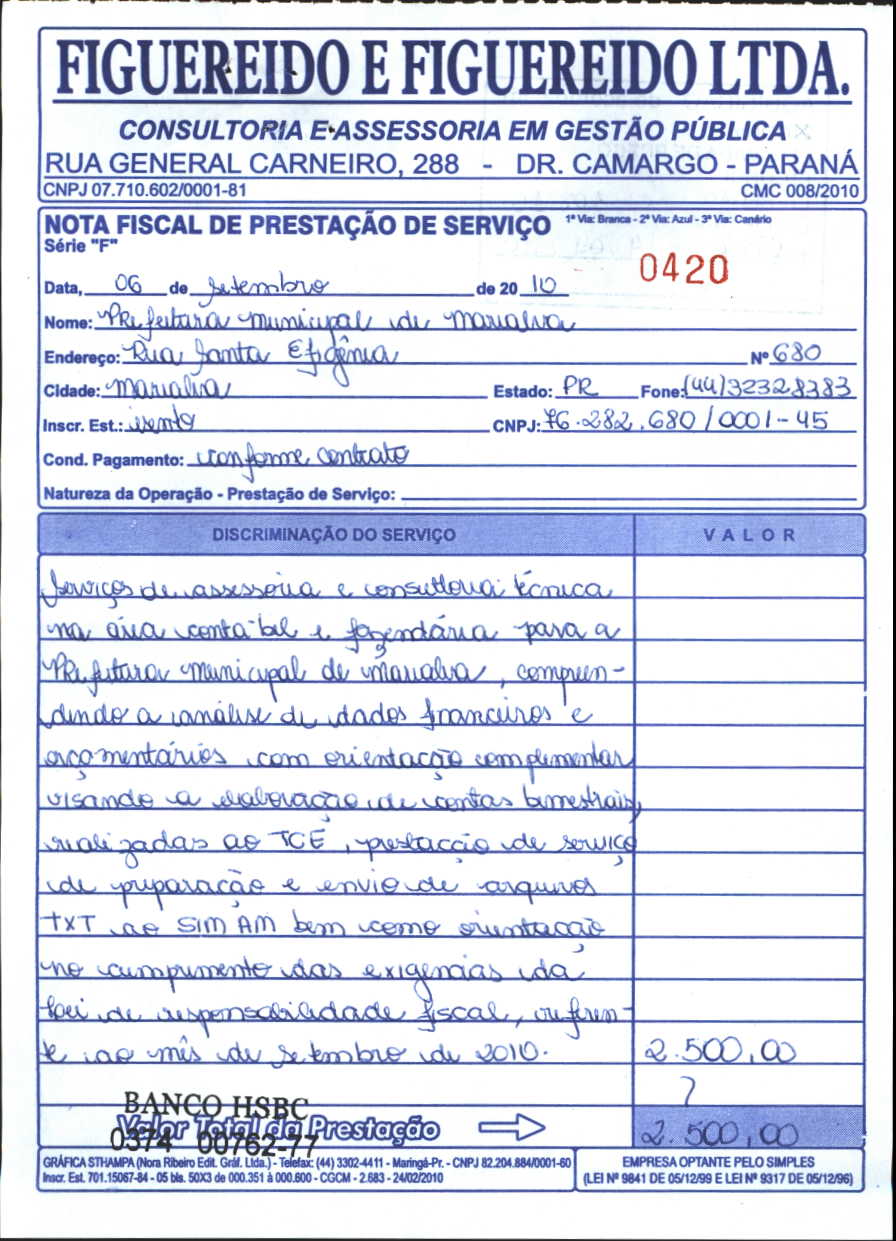 FIGUEREIDO E FIGUEREIDO LTDA.
CONSULTORIA E ASSESSORIA EM GESTÃO PÚBLICA
RUA GENERAL CARNEIRO, 288 - DR. CAMARGO - PARANÁ
CNPJ 07.710.602/0001-81 CMC 008/2010
NOTA FISCAL DE PRESTAÇÃO DE SERVIÇO 1ª Via: Branca - 2ª Via: Azul - 3ª Via: Canário
Série "F"
0420
Data, 06 de setembro de 20 10
Nome: Prefeitura municipal de Marialva
Endereço: Rua Santa Efigênia Nº 680
Cidade: Marialva Estado: PR Fone: (44) 32328383
Inscr. Est.: isento CNPJ: 76.282.680/0001-45
Cond. Pagamento: conforme contrato
Natureza da Operação - Prestação de Serviço:
DISCRIMINAÇÃO DO SERVIÇO VALOR
Serviços de assessoria e consultoria técnica
na área contábil e fazendária para a
Prefeitura municipal de Marialva, compreen-
dendo a análise de dados financeiros e
orçamentários com orientação complementar
visando a elaboração de contas bimestrais,
realizadas ao TCE, prestação de serviço
de preparação e envio de arquivos
TXT ao SIM AM bem como orientação
no cumprimento das exigências da
Lei de responsabilidade fiscal, referen-
te ao mês de setembro de 2010. 2.500,00
BANCO HSBC
Valor Total da Prestação 2.500,00
0374 00762-77
GRÁFICA STHAMPA (Nora Ribeiro Edit. Gráf. Ltda.) - Telefax: (44) 3302-4411 - Maringá-Pr. - CNPJ 82.204.884/0001-60
Inscr. Est. 701.15067-84 - 05 bls. 50X3 de 000.351 à 000.600 - CGCM - 2.683 - 24/02/2010
EMPRESA OPTANTE PELO SIMPLES
(LEI Nº 9841 DE 05/12/99 E LEI Nº 9317 DE 05/12/96)